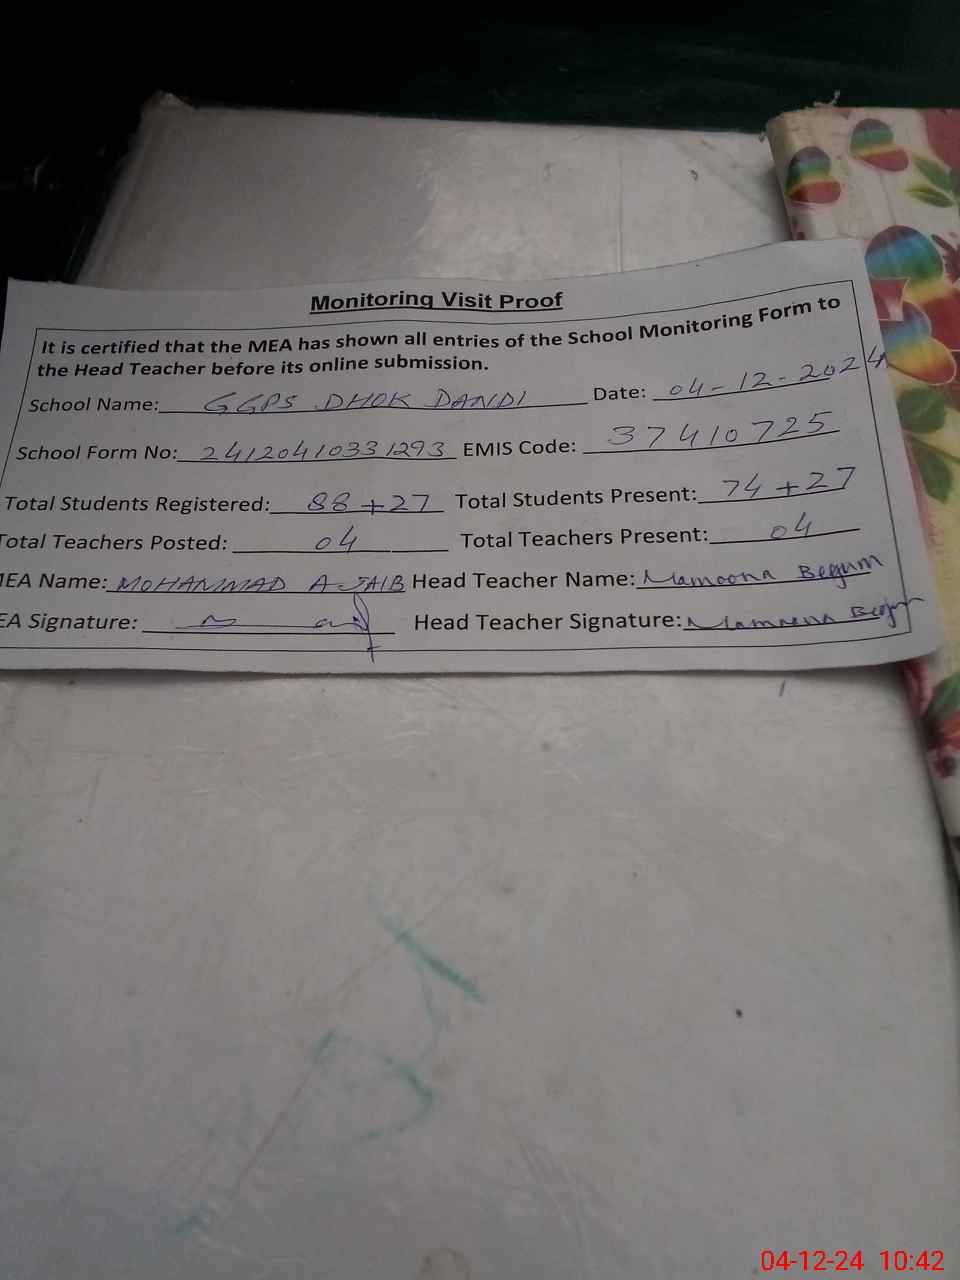 Monitoring Visit Proof
It is certified that the MEA has shown all entries of the School Monitoring Form to
the Head Teacher before its online submission.
School Name: GGPS DHOK DANDI Date: 04-12-2024
School Form No: 24120410331293 EMIS Code: 37410725
Total Students Registered: 88+27 Total Students Present: 74+27
Total Teachers Posted: 04 Total Teachers Present: 04
MEA Name: MOHAMMAD AJAIB Head Teacher Name: Mamoona Begum
EA Signature: Head Teacher Signature: Mamoona Begum
04-12-24 10:42